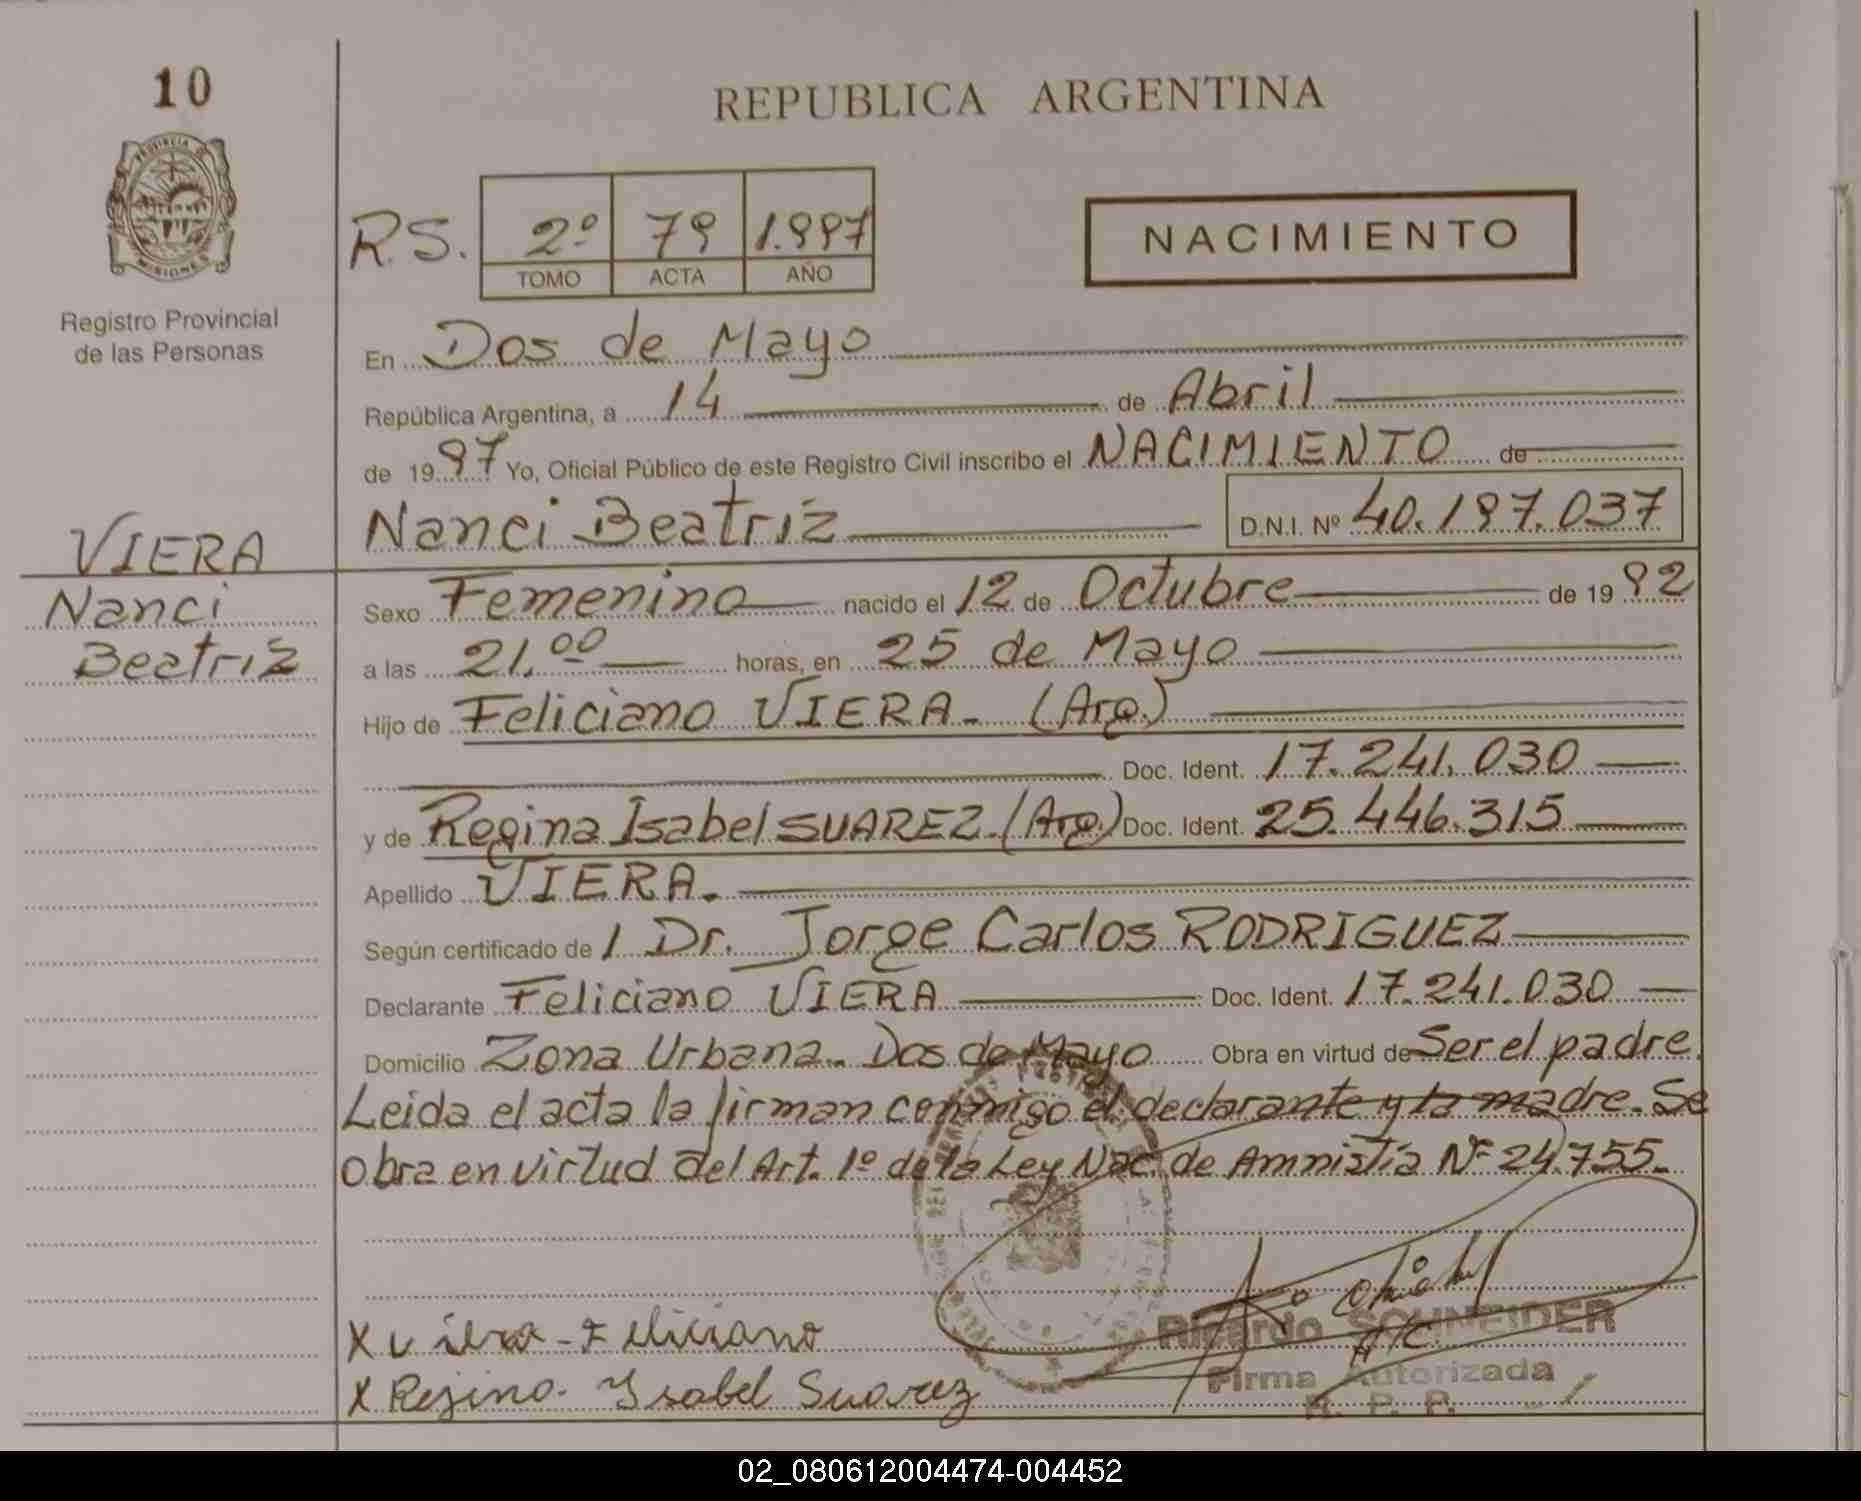 10
PROVINCIA DE
MISIONES
Registro Provincial
de las Personas
VIERA
Nanci
Beatriz
REPUBLICA ARGENTINA
R.S. 2º 79 1.997
TOMO ACTA AÑO
NACIMIENTO
En Dos de Mayo
República Argentina, a 14 de Abril
de 1997 Yo, Oficial Público de este Registro Civil inscribo el NACIMIENTO de
Nanci Beatriz D.N.I. Nº 40.197.037
Sexo Femenino nacido el 12 de Octubre de 1992
a las 21.00 horas, en 25 de Mayo
Hijo de Feliciano VIERA. (Arg.)
Doc. Ident. 17.241.030
y de Regina Isabel SUAREZ. (Arg.) Doc. Ident. 25.446.315
Apellido VIERA.
Según certificado de 1 Dr. Jorge Carlos RODRIGUEZ
Declarante Feliciano VIERA Doc. Ident. 17.241.030
Domicilio Zona Urbana. Dos de Mayo Obra en virtud de Ser el padre.
Leida el acta la firman conmigo el declarante y la madre. Se
obra en virtud del Art. 1º de la Ley Nac. de Amnistia Nº 24.755.
X Viera - Feliciano
X Rejina. Ysabel Suarez
Ricardo SCHNEIDER
A/C.
Firma Autorizada
R. P. P.
02_080612004474-004452